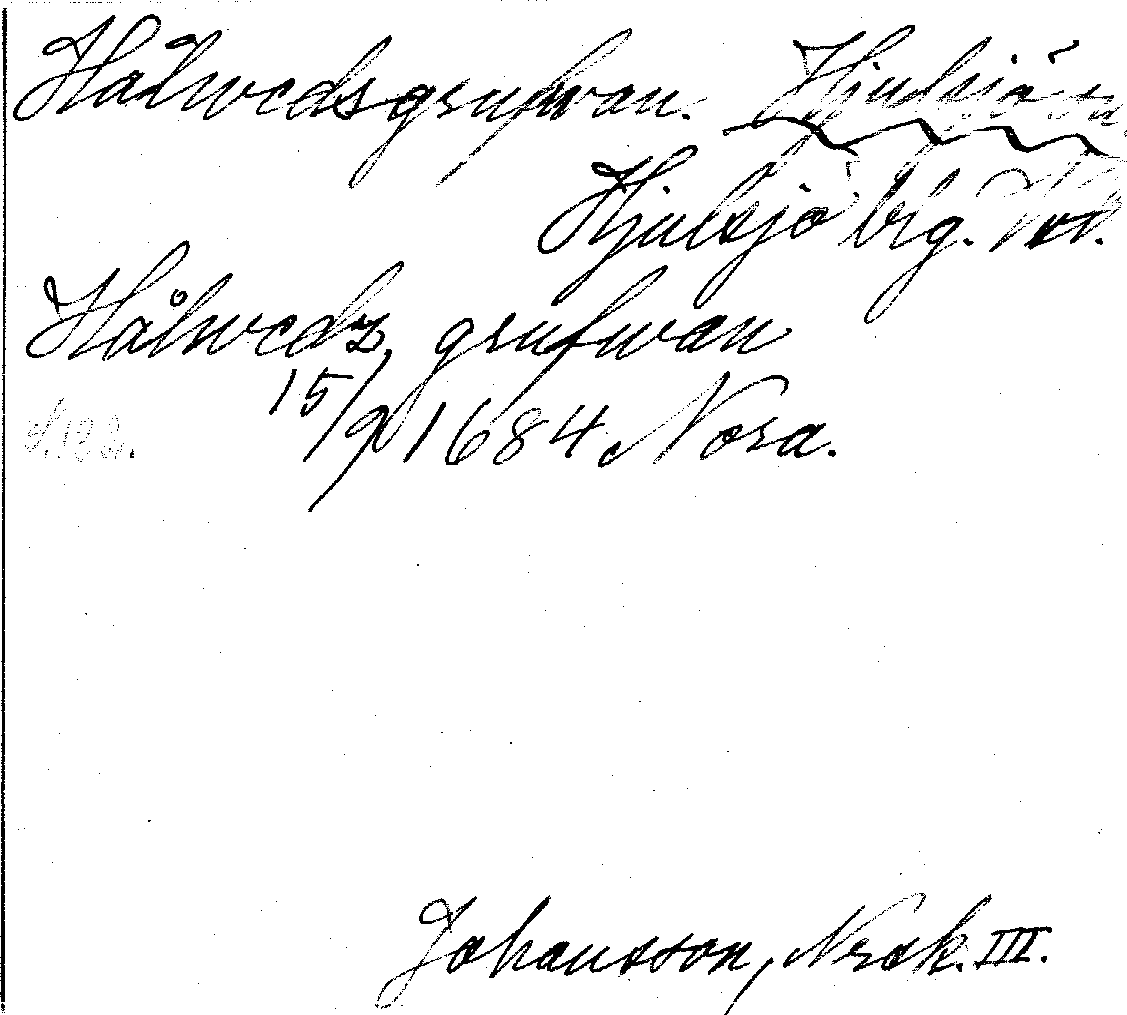 Hålwedsgrufwan. Hjulsjö sn.
Hjulsjö blg. Vml.
Hålwedz grufwan
15/9 1684 Nora.
S. 122.
Johansson, Norak. III.